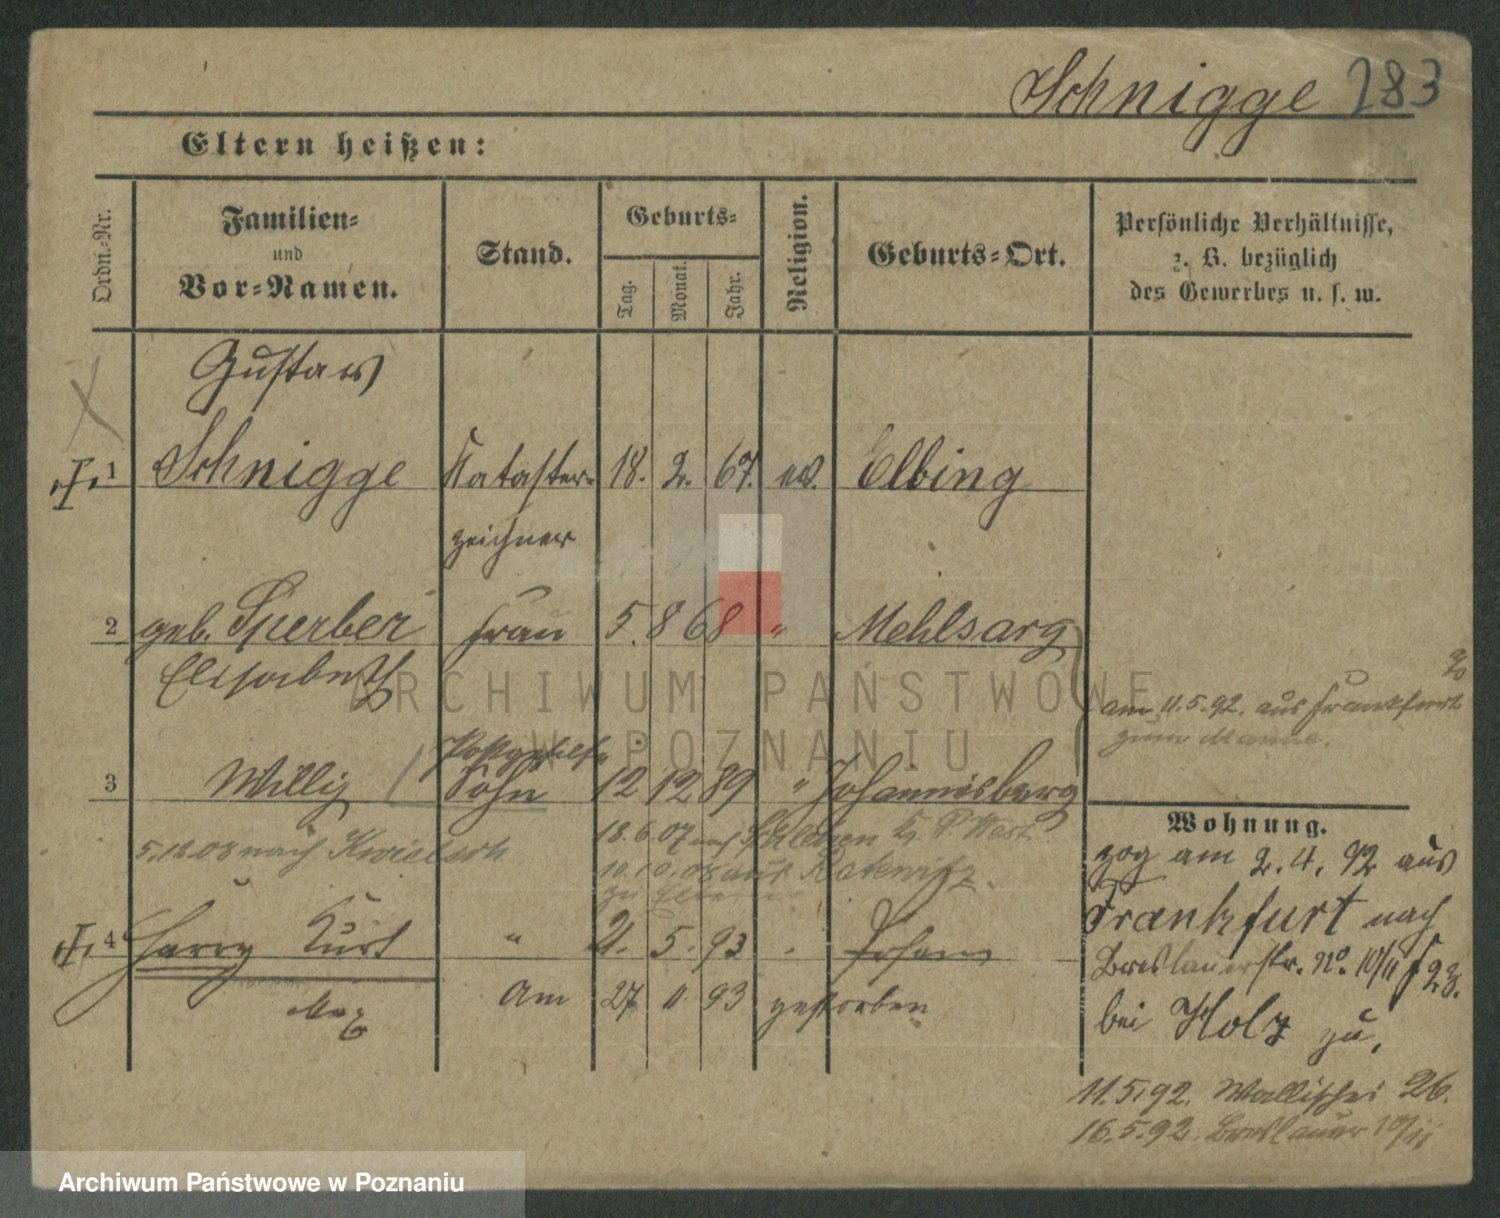 Schnigge 283
Eltern heißen:
Ordn.-Nr.
Familien-
und
Vor-Namen.
Stand.
Geburts-
Tag.
Monat.
Jahr.
Religion.
Geburts-Ort.
Persönliche Verhältnisse,
z. B. bezüglich
des Gewerbes u. s. w.
Gustav
1 Schnigge Kataster- 18. 2. 67. ev. Elbing
zeichner
2 geb. Sperber Frau 5. 8 68 " Mehlsarg
Elisabeth
am 11.5.92. aus Frankfurt
zum Manne.
Postgehilfe
3 Willy Sohn 12 12 89 " Johannisberg
18.6.07 nach
5.10.08 nach
10.10.08 aus Rakwitz
zu Eltern
4 Harry Kurt " 21. 5. 93
Max
am 27 11 93 gestorben
Wohnung.
zog am 2.4.92 aus
Frankfurt nach
Breslauerstr. No. 10/11
bei Holz zu.
11.5.92. Wallischei 26.
16.5.92. Breslauer 10/11
ARCHIWUM PAŃSTWOWE
W POZNANIU
Archiwum Państwowe w Poznaniu